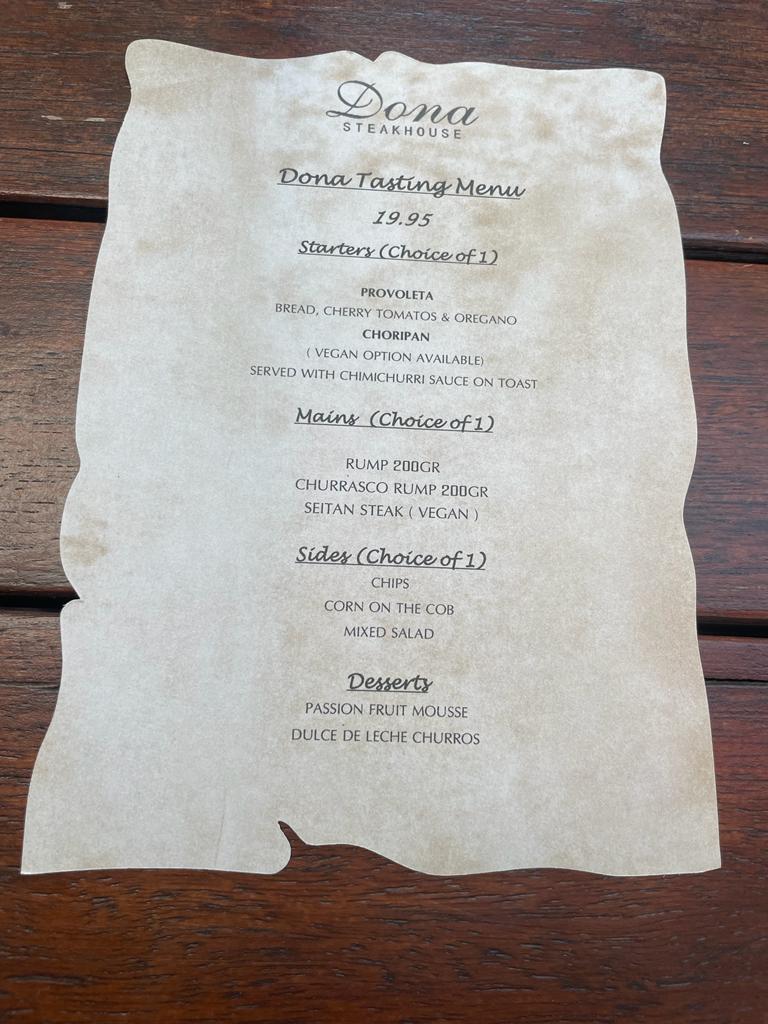 Dona
STEAKHOUSE
Dona Tasting Menu
19.95
Starters (Choice of 1)
PROVOLETA
BREAD, CHERRY TOMATOS & OREGANO
CHORIPAN
( VEGAN OPTION AVAILABLE)
SERVED WITH CHIMICHURRI SAUCE ON TOAST
Mains (Choice of 1)
RUMP 200GR
CHURRASCO RUMP 200GR
SEITAN STEAK ( VEGAN )
Sides (Choice of 1)
CHIPS
CORN ON THE COB
MIXED SALAD
Desserts
PASSION FRUIT MOUSSE
DULCE DE LECHE CHURROS